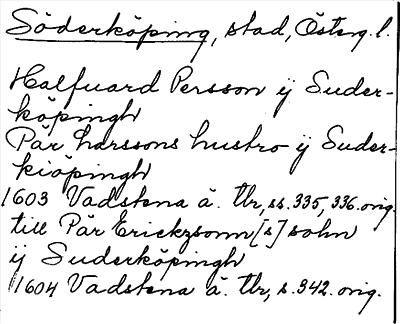 Söderköping, stad, Österg.l.
Halfuard Persson ÿ Suder-
köpingh
Pär Larssons hustro ÿ Suder-
kiöpingh
1603 Vadstena ä. tlr, ss. 335, 336. orig.
till Pär Erickzsonn [s] sohn
ÿ Suderköpingh
1604 Vadstena ä. tlr, s. 342. orig.